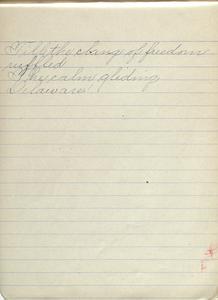 Till the clang of freedom
ruffled
Thy calm gliding
Delaware!